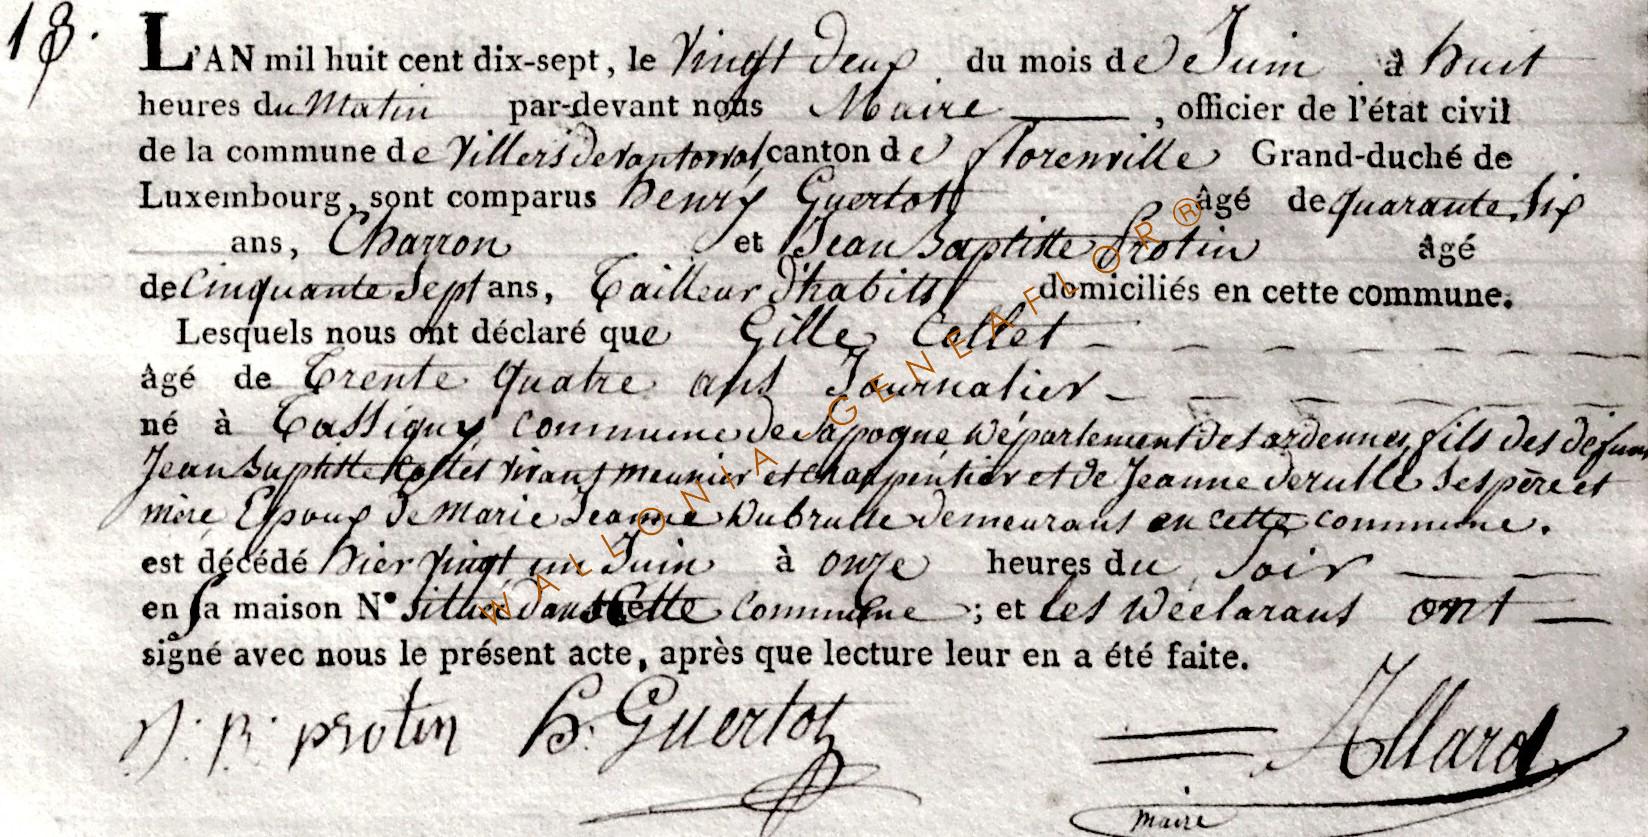 18.
L'AN mil huit cent dix-sept, le Vingt deux du mois de Juin à huit
heures du Matin par-devant nous Maire , officier de l'état civil
de la commune de Villersdevantorval, canton de florenville Grand-duché de
Luxembourg, sont comparus henry Guertot âgé de quarante Six
ans, Charron et Jean Baptiste Protin âgé
de Cinquante Sept ans, Tailleur d'habits domiciliés en cette commune.
Lesquels nous ont déclaré que Gille Collet
âgé de Trente quatre ans Journalier
né à Tassigny commune de Sapogne Département des ardennes, fils des défunts
Jean Baptiste Collet vivant meunier et charpentier et de Jeanne derulle Ses père et
mère Epoux de marie Jeanne Dubrulle demeurant en cette commune.
est décédé hier vingt un Juin à onze heures du Soir
en Sa maison N° située dans Cette commune ; et les Déclarans ont
signé avec nous le présent acte, après que lecture leur en a été faite.
J: B: protin h: Guertot Allard
maire
WALLONIA-GENEAFLOR®